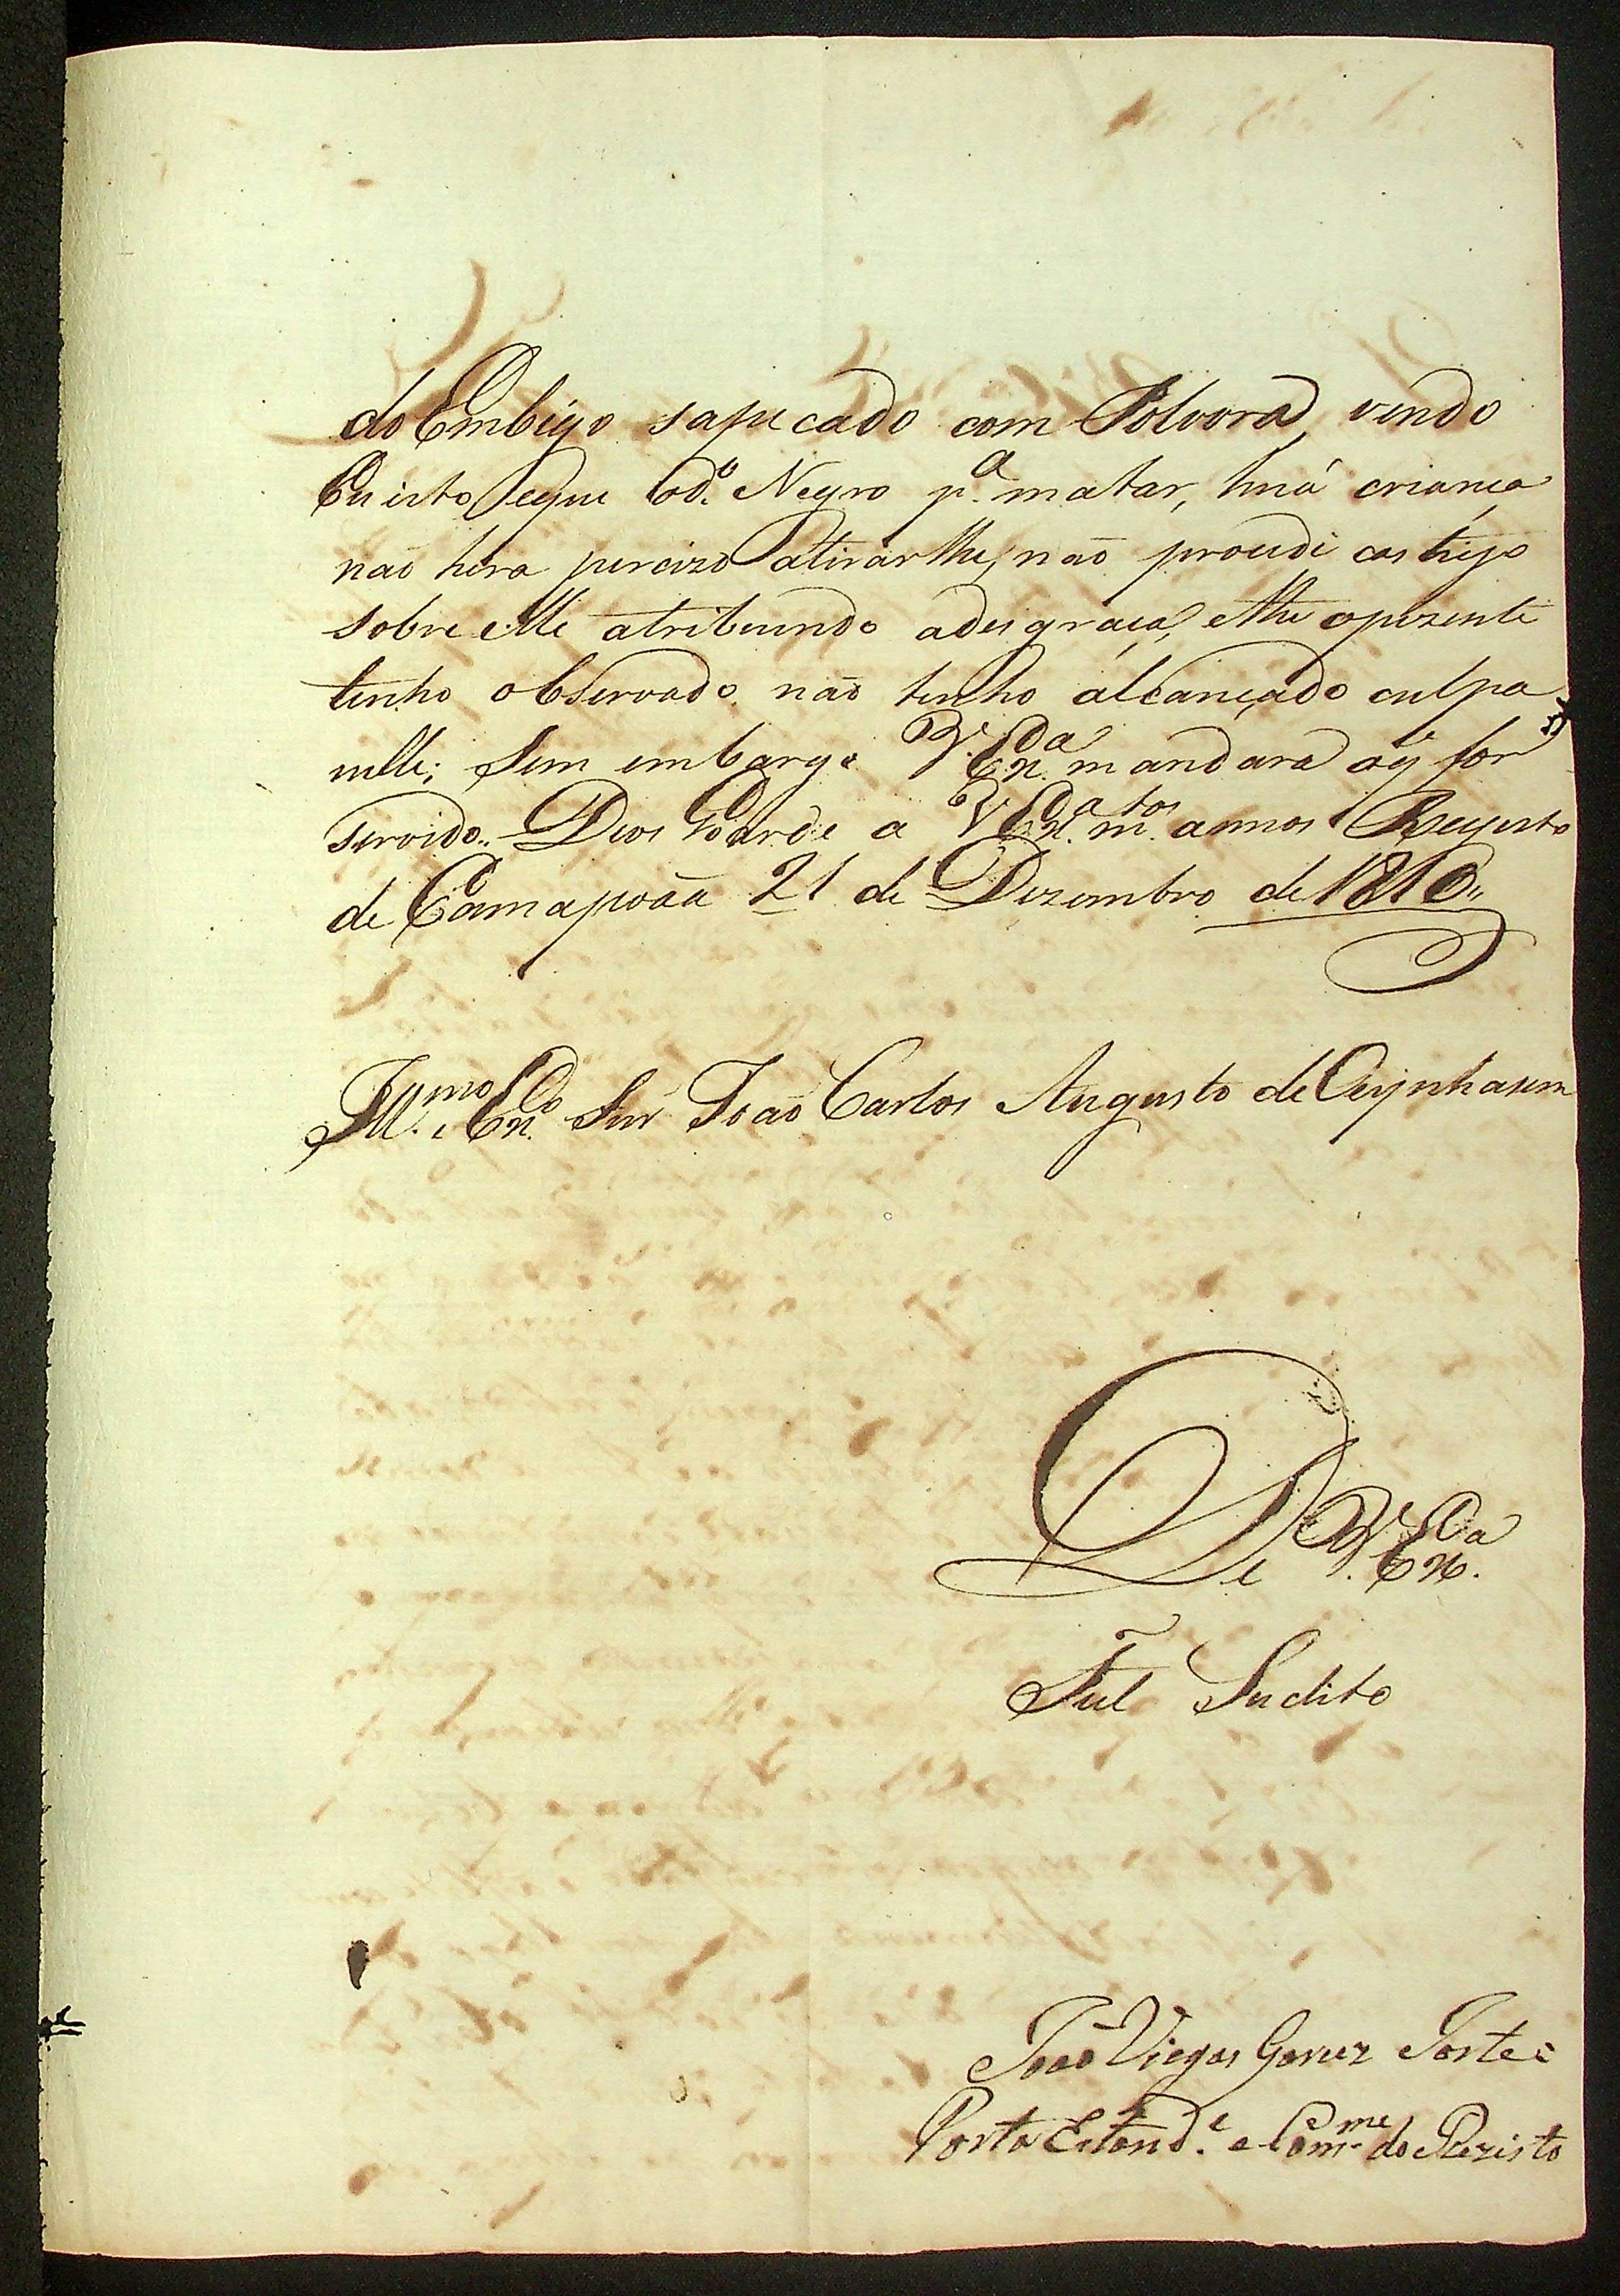 do Embigo sapecado com Polvora, vendo
Eu isto, eque od.º Negro p.ª matar, huã criança
não hera percizo atirarlhe, não procedi castigo
sobre elle atribuindo adesgraça, ethe oprezente
tenho observado não tenho alcançado culpa
nelle; Sem embargo V. Ex.ª mandara oq̃ for
servido. Deos Guarde a V. Ex.ª m.tos annos Registo
de Camapoãa 21 de Dezembro de 1810,,
Ill.mo e Ex.mo Snr̃ João Carlos Augusto de Oeynhasem
De V. Ex.ª
Fiel Sudito
João Viegas Forte
Porta Estand.e e Com.me do Rezisto